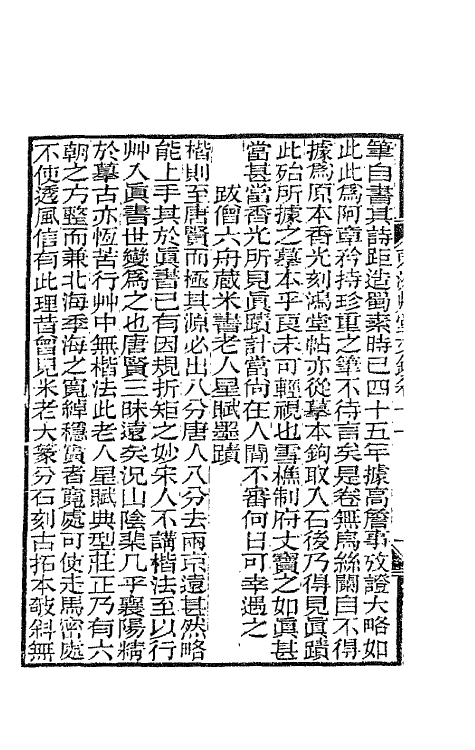 筆自書其詩距造蜀素時已四十五年據高詹事攷證大略如
此此爲阿章矜持珍重之筆不待言矣是卷無烏絲闌自不得
據爲原本香光刻鴻堂帖亦從摹本鉤取入石後乃得見眞蹟
此殆所據之摹本乎頁未可輕視也雪樵制府丈寶之如眞甚
當甚當香光所見眞蹟計當尙在人間不審何日可幸遇之
跋僧六舟藏米書老人星賦墨蹟
楷則至唐賢而極其源必出八分唐人八分去兩京遠甚然略
能上手其於眞書已有因規折矩之妙宋人不講楷法至以行
艸入眞書世變爲之也唐賢三昧遠矣況山陰棐几乎襄陽精
於摹古亦恆苦行艸中無楷法此老人星賦典型莊正乃有六
朝之方整而兼北海季海之寬綽穩實者寬處可使走馬密處
不使透風信有此理昔曾見米老大篆分石刻古拓本攲斜無